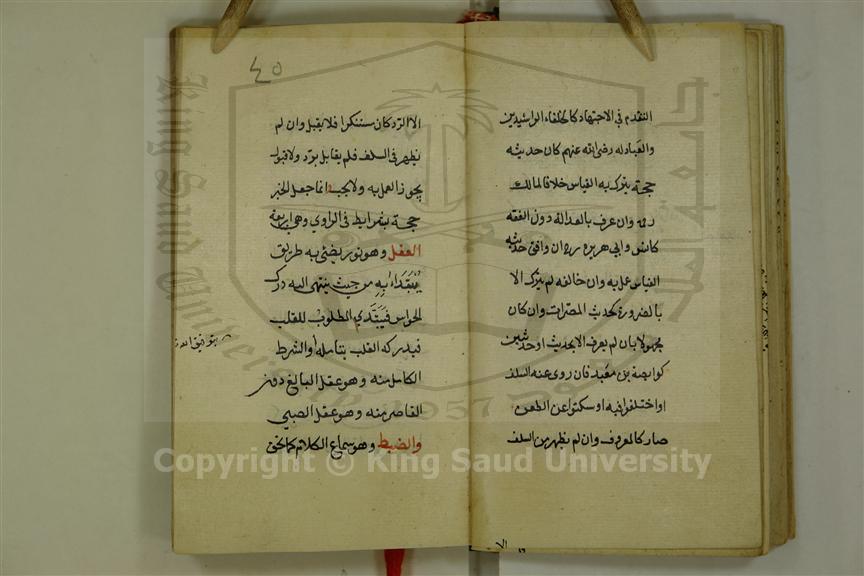 التقدم في الاجتهاد كالخلفاء الراشدين
والعبادله رضى الله عنهم كان حديثه
حجة يترك به القياس خلافا لمالك
رحمه وان عرف بالعدالة دون الفقه
كانس وابي هريره رض ان وافق حديثه
القياس عمل به وان خالفه لم يترك الا
بالضرورة كحديث المصرات وان كان
مجهولا بان لم يعرف الا بحديث او حديثين
كوابصة بن معبد فان روى عنه السلف
او اختلفوا فيه او سكتوا عن الطعن
صار كالمعروف وان لم يظهر من السلف
٤٥
الا الرد كان مستنكرا فلا يقبل وان لم
يظهر في السلف فلم يقابل برد ولا قبول
يجوز العمل به ولا يجب انما جعل الخبر
حجة بشرايط في الراوي وهي اربعة
العقل وهو نور يضئ به طريق
يبتداء به من حيث ينتهى اليه درك
الحواس فيبتدي المطلوب للقلب
فيدركه القلب بتامله والشرط
الكامل منه وهو عقل البالغ دون
القاصر منه وهو عقل الصبي
والضبط وهو سماع الكلام كما يحق
بتوفيق الله
جامعة الملك
King Saud University
1957
Copyright © King Saud University